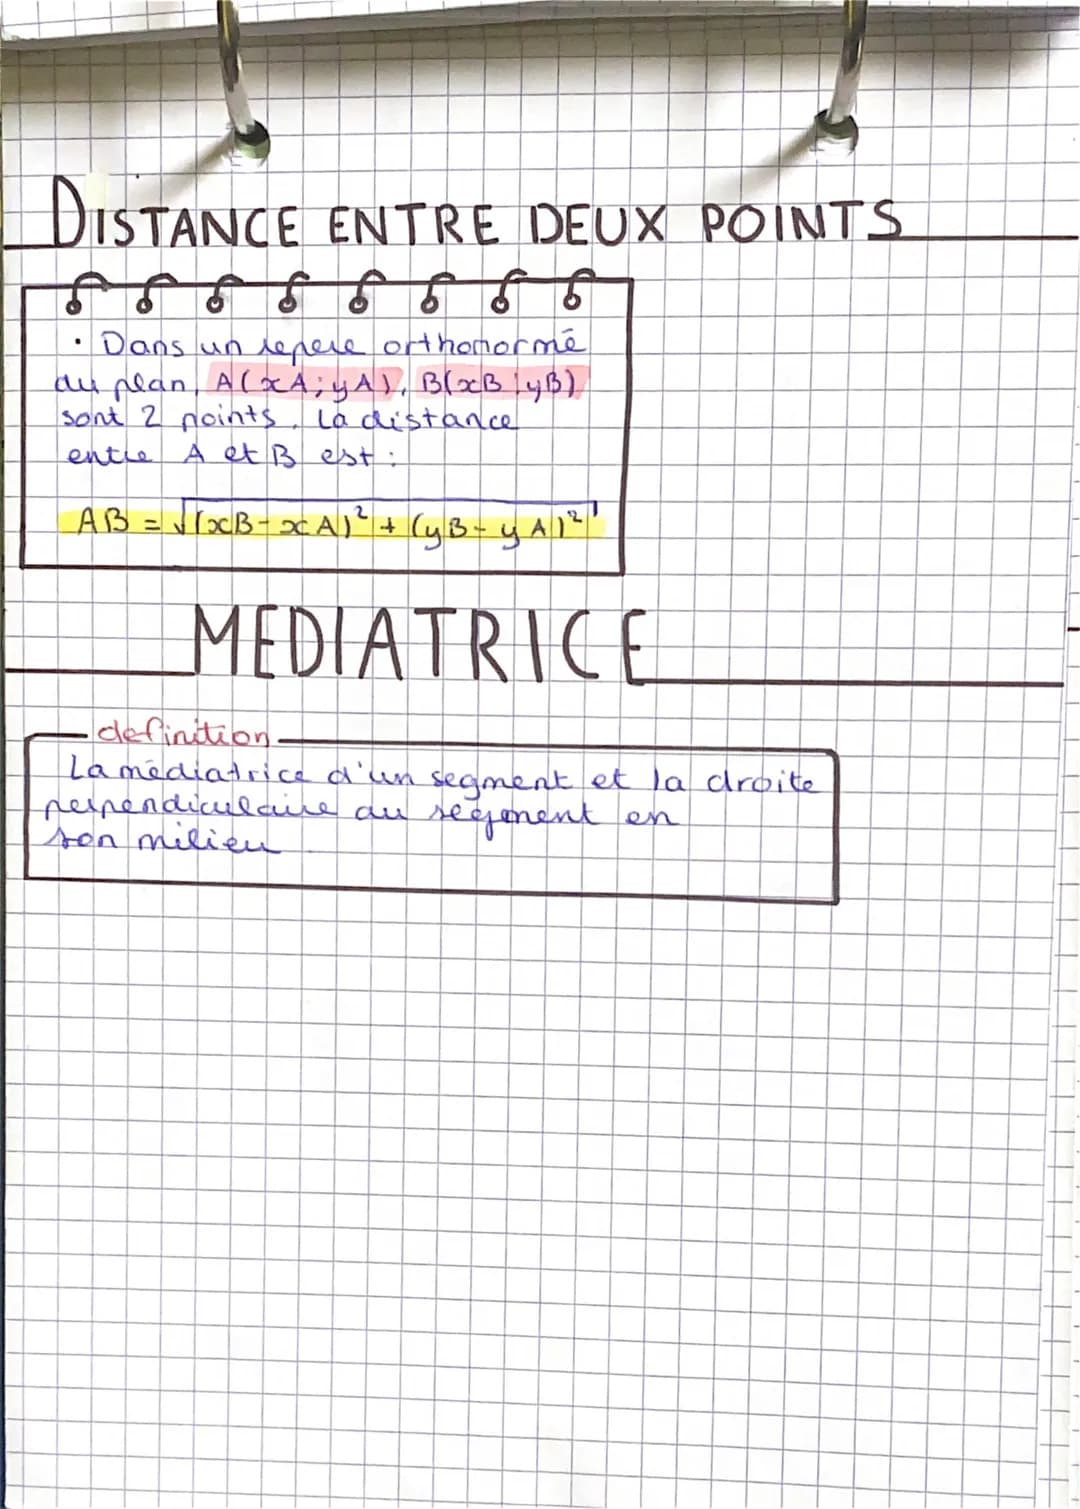 DISTANCE ENTRE DEUX POINTS
• Dans un repere orthonormé
du plan, A(xA; yA), B(xB ; yB)
sont 2 points. La distance
entre A et B est :
AB = √(xB - xA)² + (yB - yA)²
MEDIATRICE
definition
La médiatrice d'un segment et la droite
perpendiculaire au segment en
son milieu